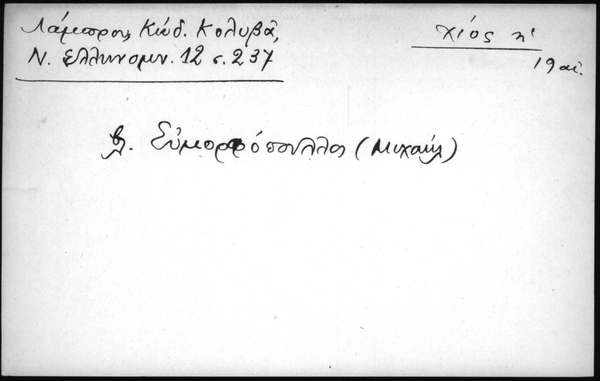 Λάμπρου, Κώδ. Κολυβᾶ,
Ν. Ελληνομν. 12 σ. 237
Χίος κ'
19 αἰ.
β. Εὐμορφόπουλλος (Μιχαὴλ)